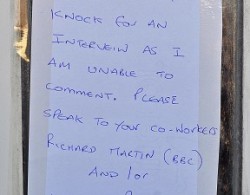 KNOCK FOR AN
INTERVEIN AS I
AM UNABLE TO
COMMENT. PLEASE
SPEAK TO YOUR CO-WORKERS
RICHARD MARTIN (BBC)
AND/OR